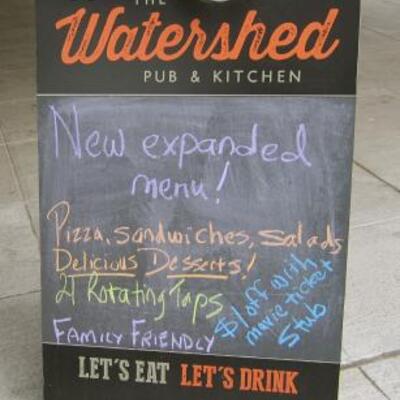 THE
Watershed
PUB & KITCHEN
New expanded
menu!
Pizza, Sandwiches, Salads
Delicious Desserts!
21 Rotating Taps
FAMILY FRIENDLY
$1 off with
movie ticket
stub
LET'S EAT LET'S DRINK